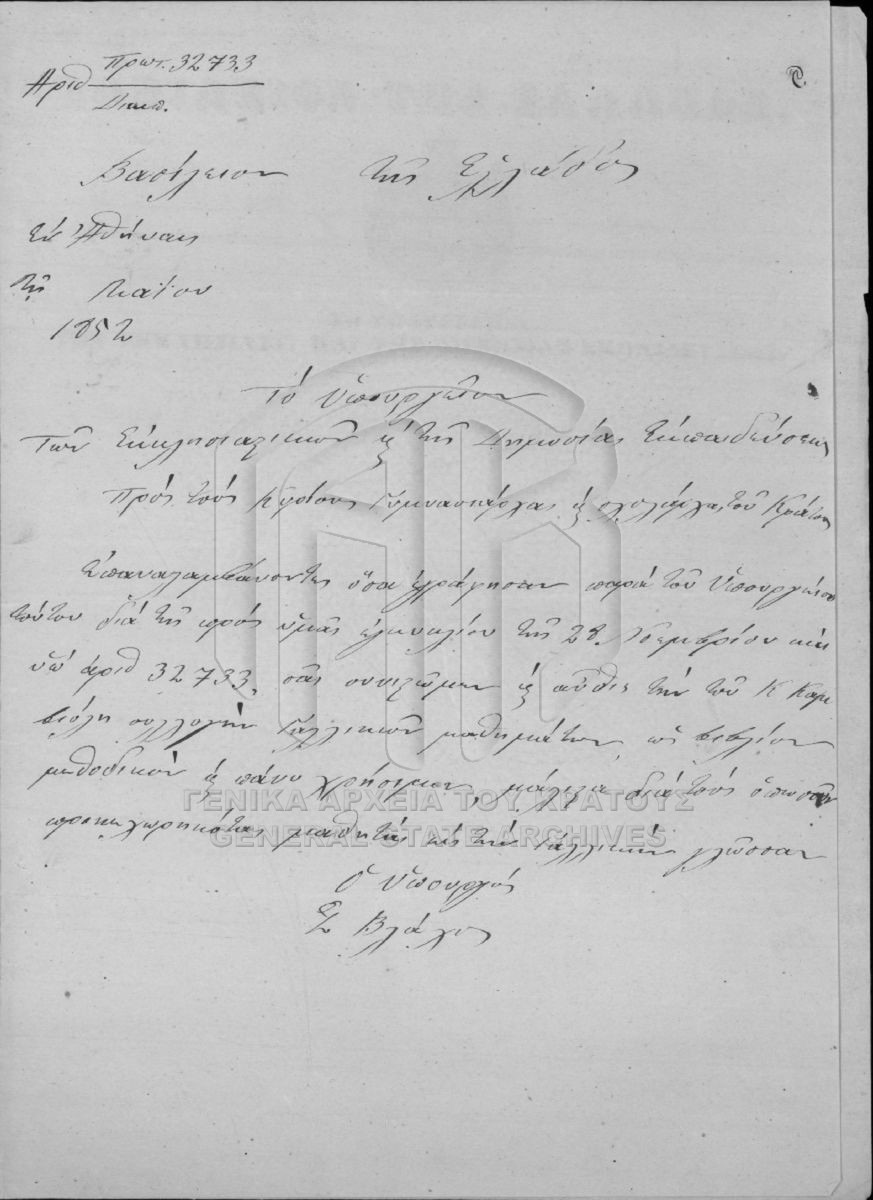 Αριθ Πρωτ. 32733
Διεκπ.
Βασίλειον τῆς Ἑλλάδος
Ἐν Ἀθήναις
τῇ Μαΐου
1852
Τό Ὑπουργεῖον
τῶν Ἐκκλησιαστικῶν ϗ τῆς Δημοσίας Ἐκπαιδεύσεως
Πρός τούς Κυρίους Γυμνασιάρχας ϗ σχολάρχας τοῦ Κράτους
Ἐπαναλαμβάνοντες ὅσα ἐγράφησαν παρά τοῦ Ὑπουργείου
τούτου διά τῆς πρός ὑμᾶς ἐγκυκλίου τῆς 28 Νοεμβρίου
ὑπ' ἀριθ 32733, σᾶς συνιστῶμεν ϗ αὖθις τήν τοῦ Κ Καμ
πιόλη συλλογήν Γαλλικῶν μαθημάτων, ὡς βιβλίον
μεθοδικόν ϗ πάνυ χρήσιμον, μάλιστα διά τούς ὁπωσοῦν
προκεχωρηκότας μαθητάς εἰς τήν Γαλλικήν γλῶσσαν
Ὁ Ὑπουργός
Σ Βλάχος
ΓΕΝΙΚΑ ΑΡΧΕΙΑ ΤΟΥ ΚΡΑΤΟΥΣ
GENERAL STATE ARCHIVES